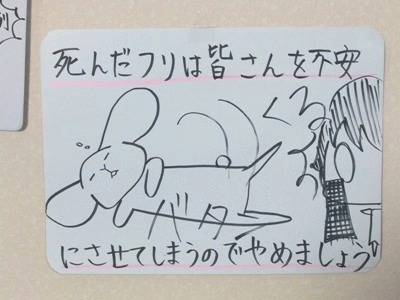 死んだフリは皆さんを不安
バタ
にさせてしまうのでやめましょう